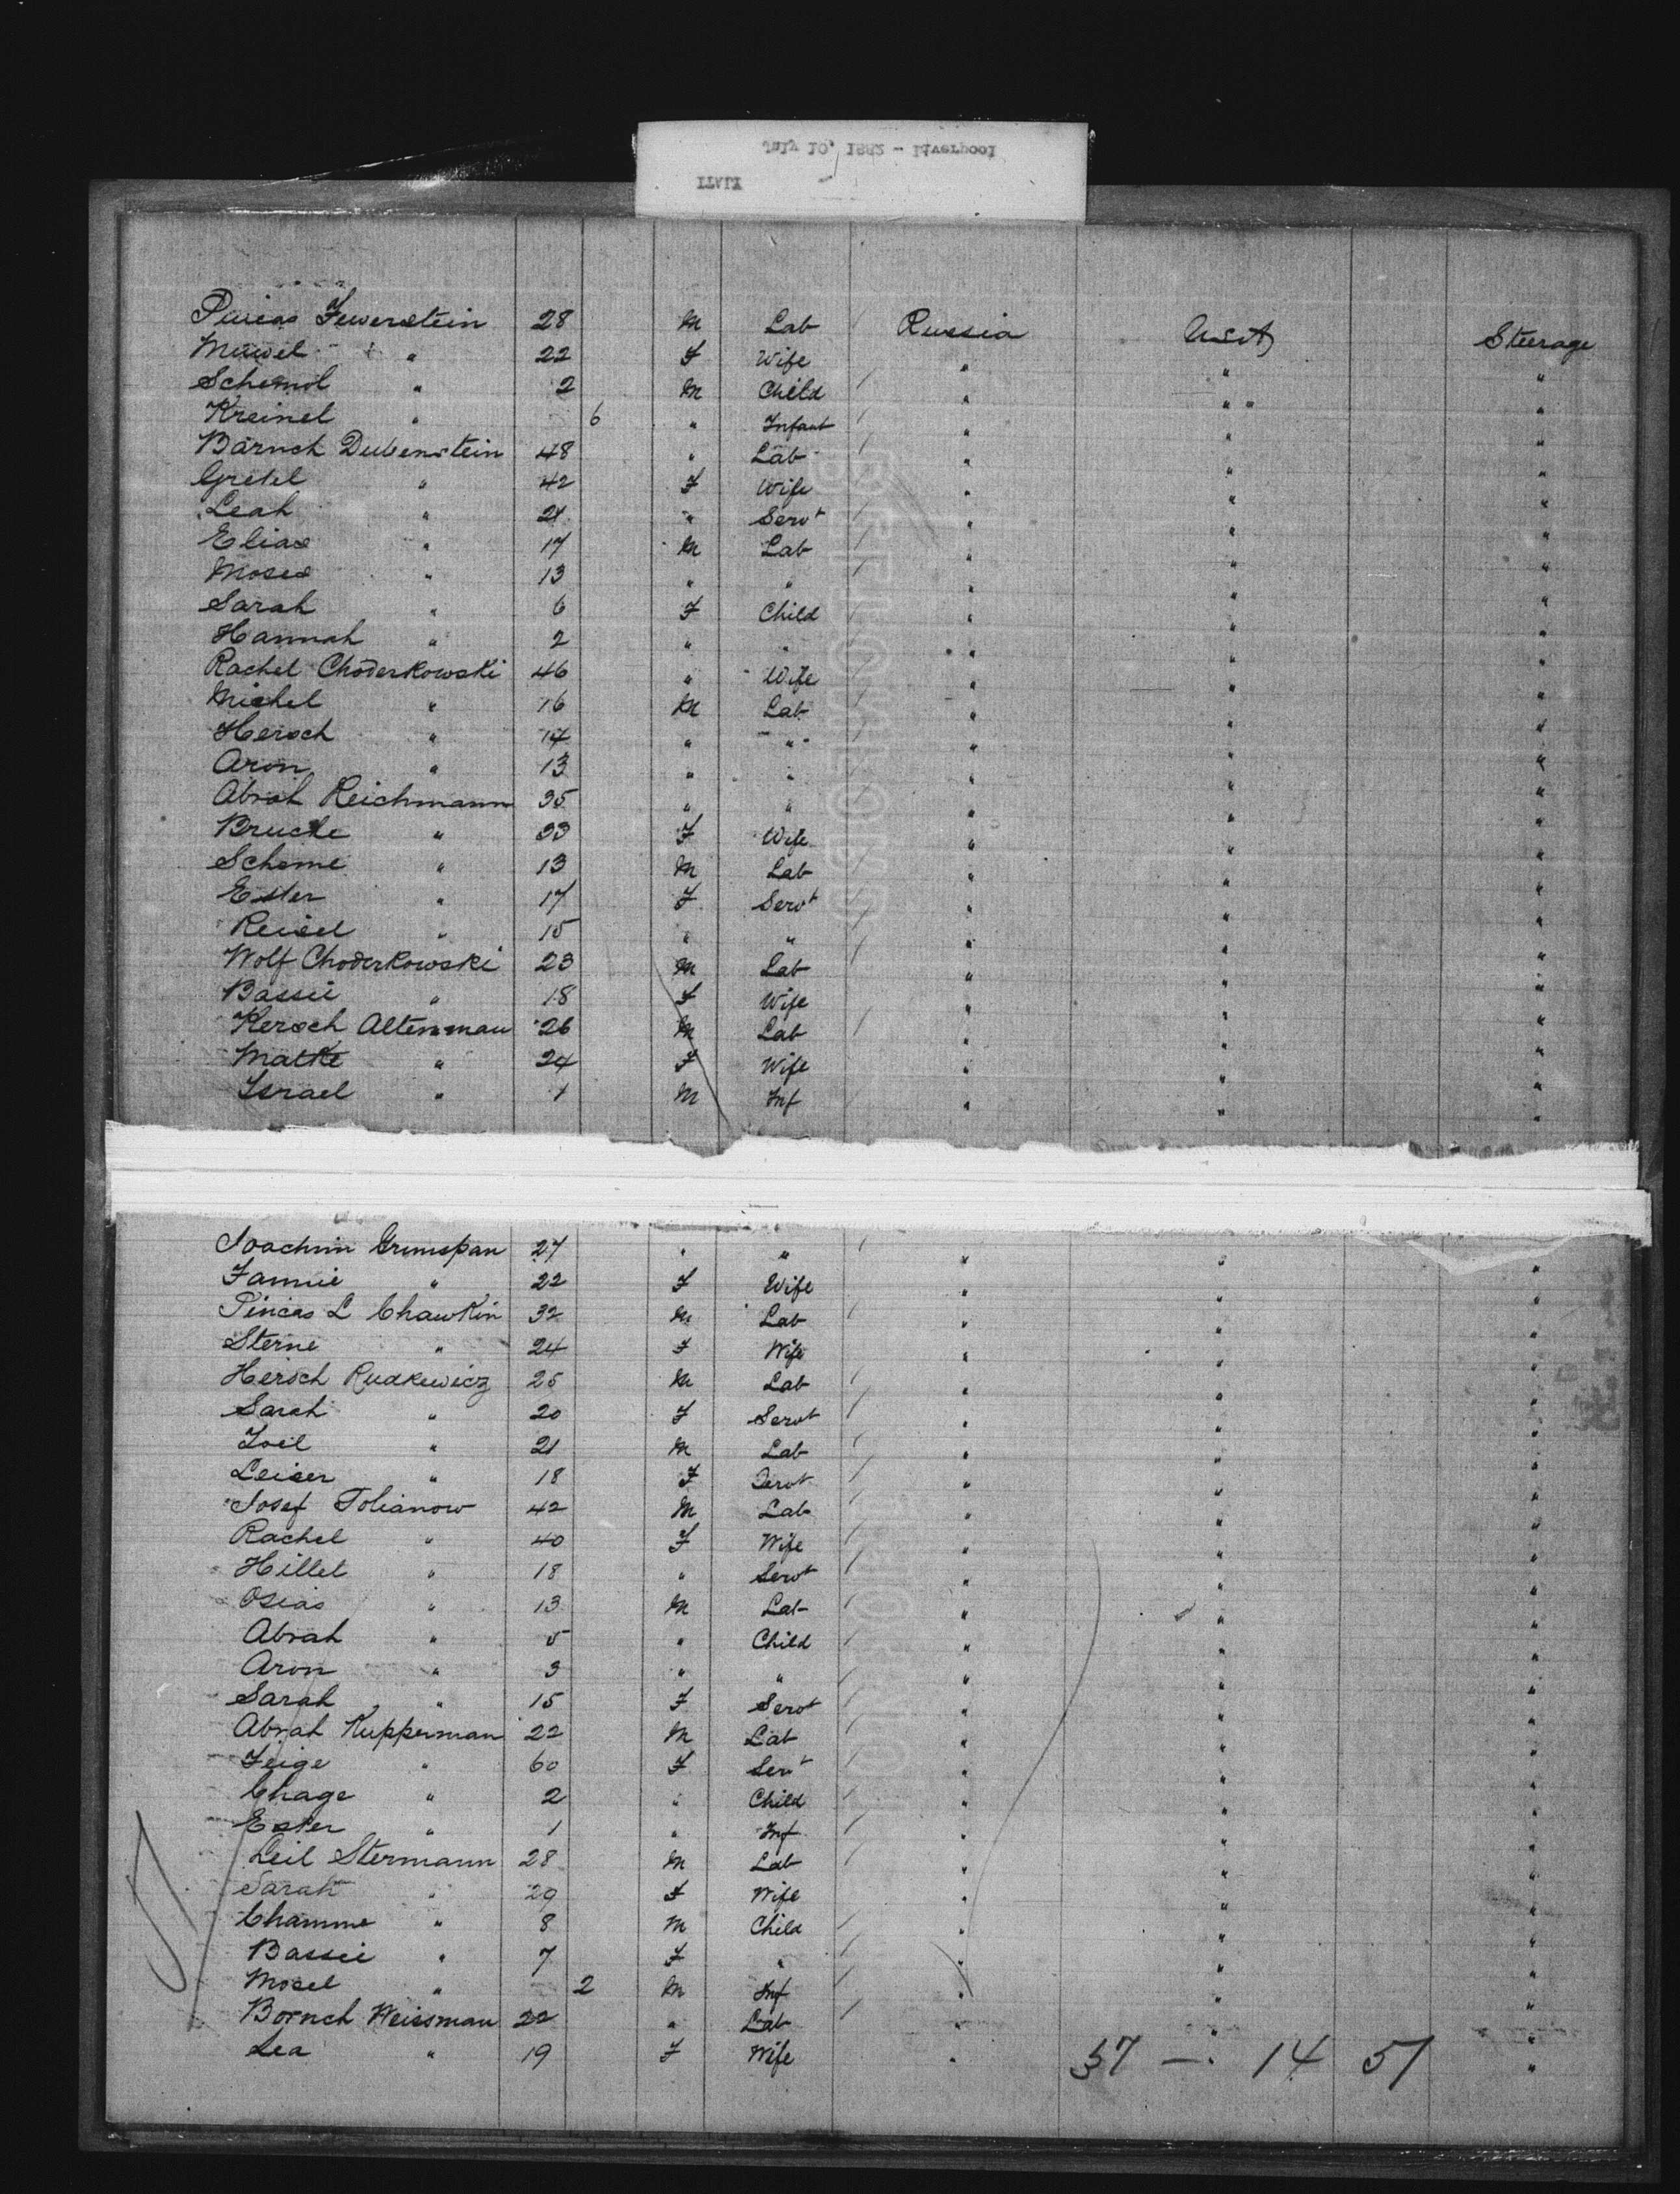 July 10, 1882 - Liverpool
Pincas Fewerstein 28 M Lab Russia USA Steerage
Muwel " 22 F Wife " " "
Schemol " 2 M Child " " "
Kreinel " 6 " Infant " " "
Barnch Dubenstein 48 " Lab " " "
Gretel " 42 F Wife " " "
Leah " 21 " Servt " " "
Elias " 17 M Lab " " "
Moses " 13 " " " " "
Sarah " 6 F Child " " "
Hannah " 2 " " " " "
Rachel Choderkowski 46 " Wife " " "
Michel " 16 M Lab " " "
Hersch " 14 " " " " "
Aron " 13 " " " " "
Abrah Reichmann 35 " " " " "
Bruche " 33 F Wife " " "
Scheme " 13 M Lab " " "
Ester " 17 F Servt " " "
Reisel " 15 " " " " "
Wolf Choderkowski 23 M Lab " " "
Bassie " 18 F Wife " " "
Hersch Altenmau 26 M Lab " " "
Matke " 24 F Wife " " "
Israel " 1 M Inf " " "
Joachim Grunspan 27 " " " " "
Fannie " 22 F Wife " " "
Pincas L Chawkin 32 M Lab " " "
Sterne " 24 F Wife " " "
Hersch Rudkewicz 25 M Lab " " "
Sarah " 20 F Servt " " "
Joel " 21 M Lab " " "
Leiser " 18 F Servt " " "
Josef Tolianow 42 M Lab " " "
Rachel " 40 F Wife " " "
Hillel " 18 " Servt " " "
Osias " 13 M Lab " " "
Abrah " 5 " Child " " "
Aron " 3 " " " " "
Sarah " 15 F Servt " " "
Abrah Kupperman 22 M Lab " " "
Feige " 60 F Servt " " "
Chage " 2 " Child " " "
Ester " 1 " Inf " " "
Leil Stermann 28 M Lab " " "
Sarah " 29 F Wife " " "
Chamme " 8 M Child " " "
Bassie " 7 F " " " "
Mosel " 2 M Inf " " "
Bornch Weissman 22 " Lab " " "
Lea " 19 F Wife " 37 — 14 51 "